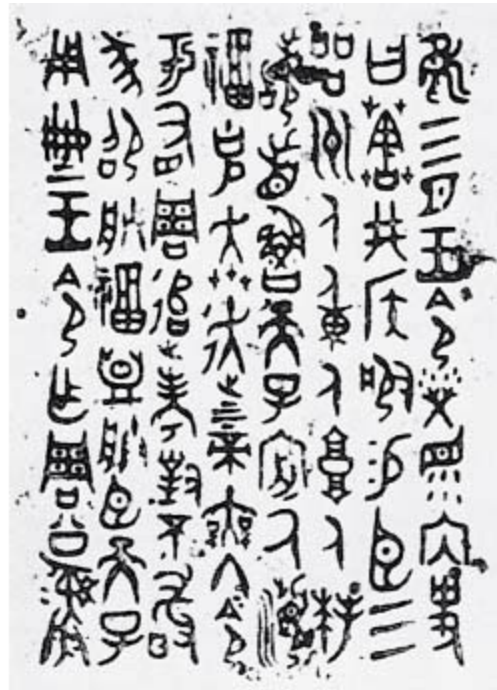 隹三月王令榮眔內史
曰井侯服易臣三
品州人重人墉人拜
稽首魯天子厥瀕
福克奔走上下帝無冬令
于有周追考對不敢
卲朕福盟朕臣天子
用冊王令乍周公彝